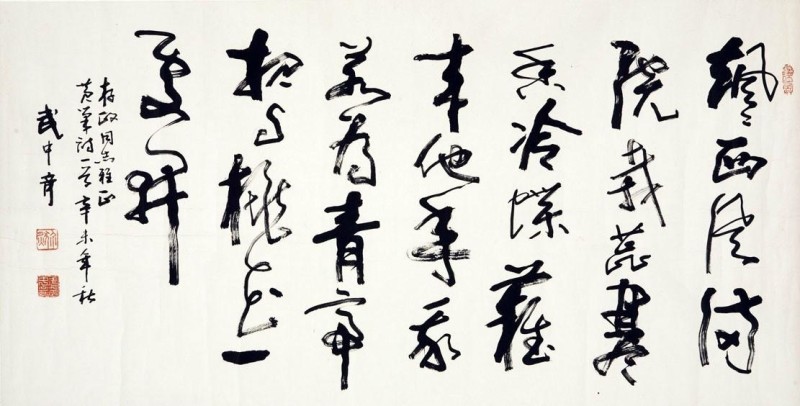 飒々西风满
院栽蕊寒
香冷蝶難
来他年我
若为青帝
报与桃花一
处开
存政同志雅正
黄巢诗一首 辛未年秋
武中奇